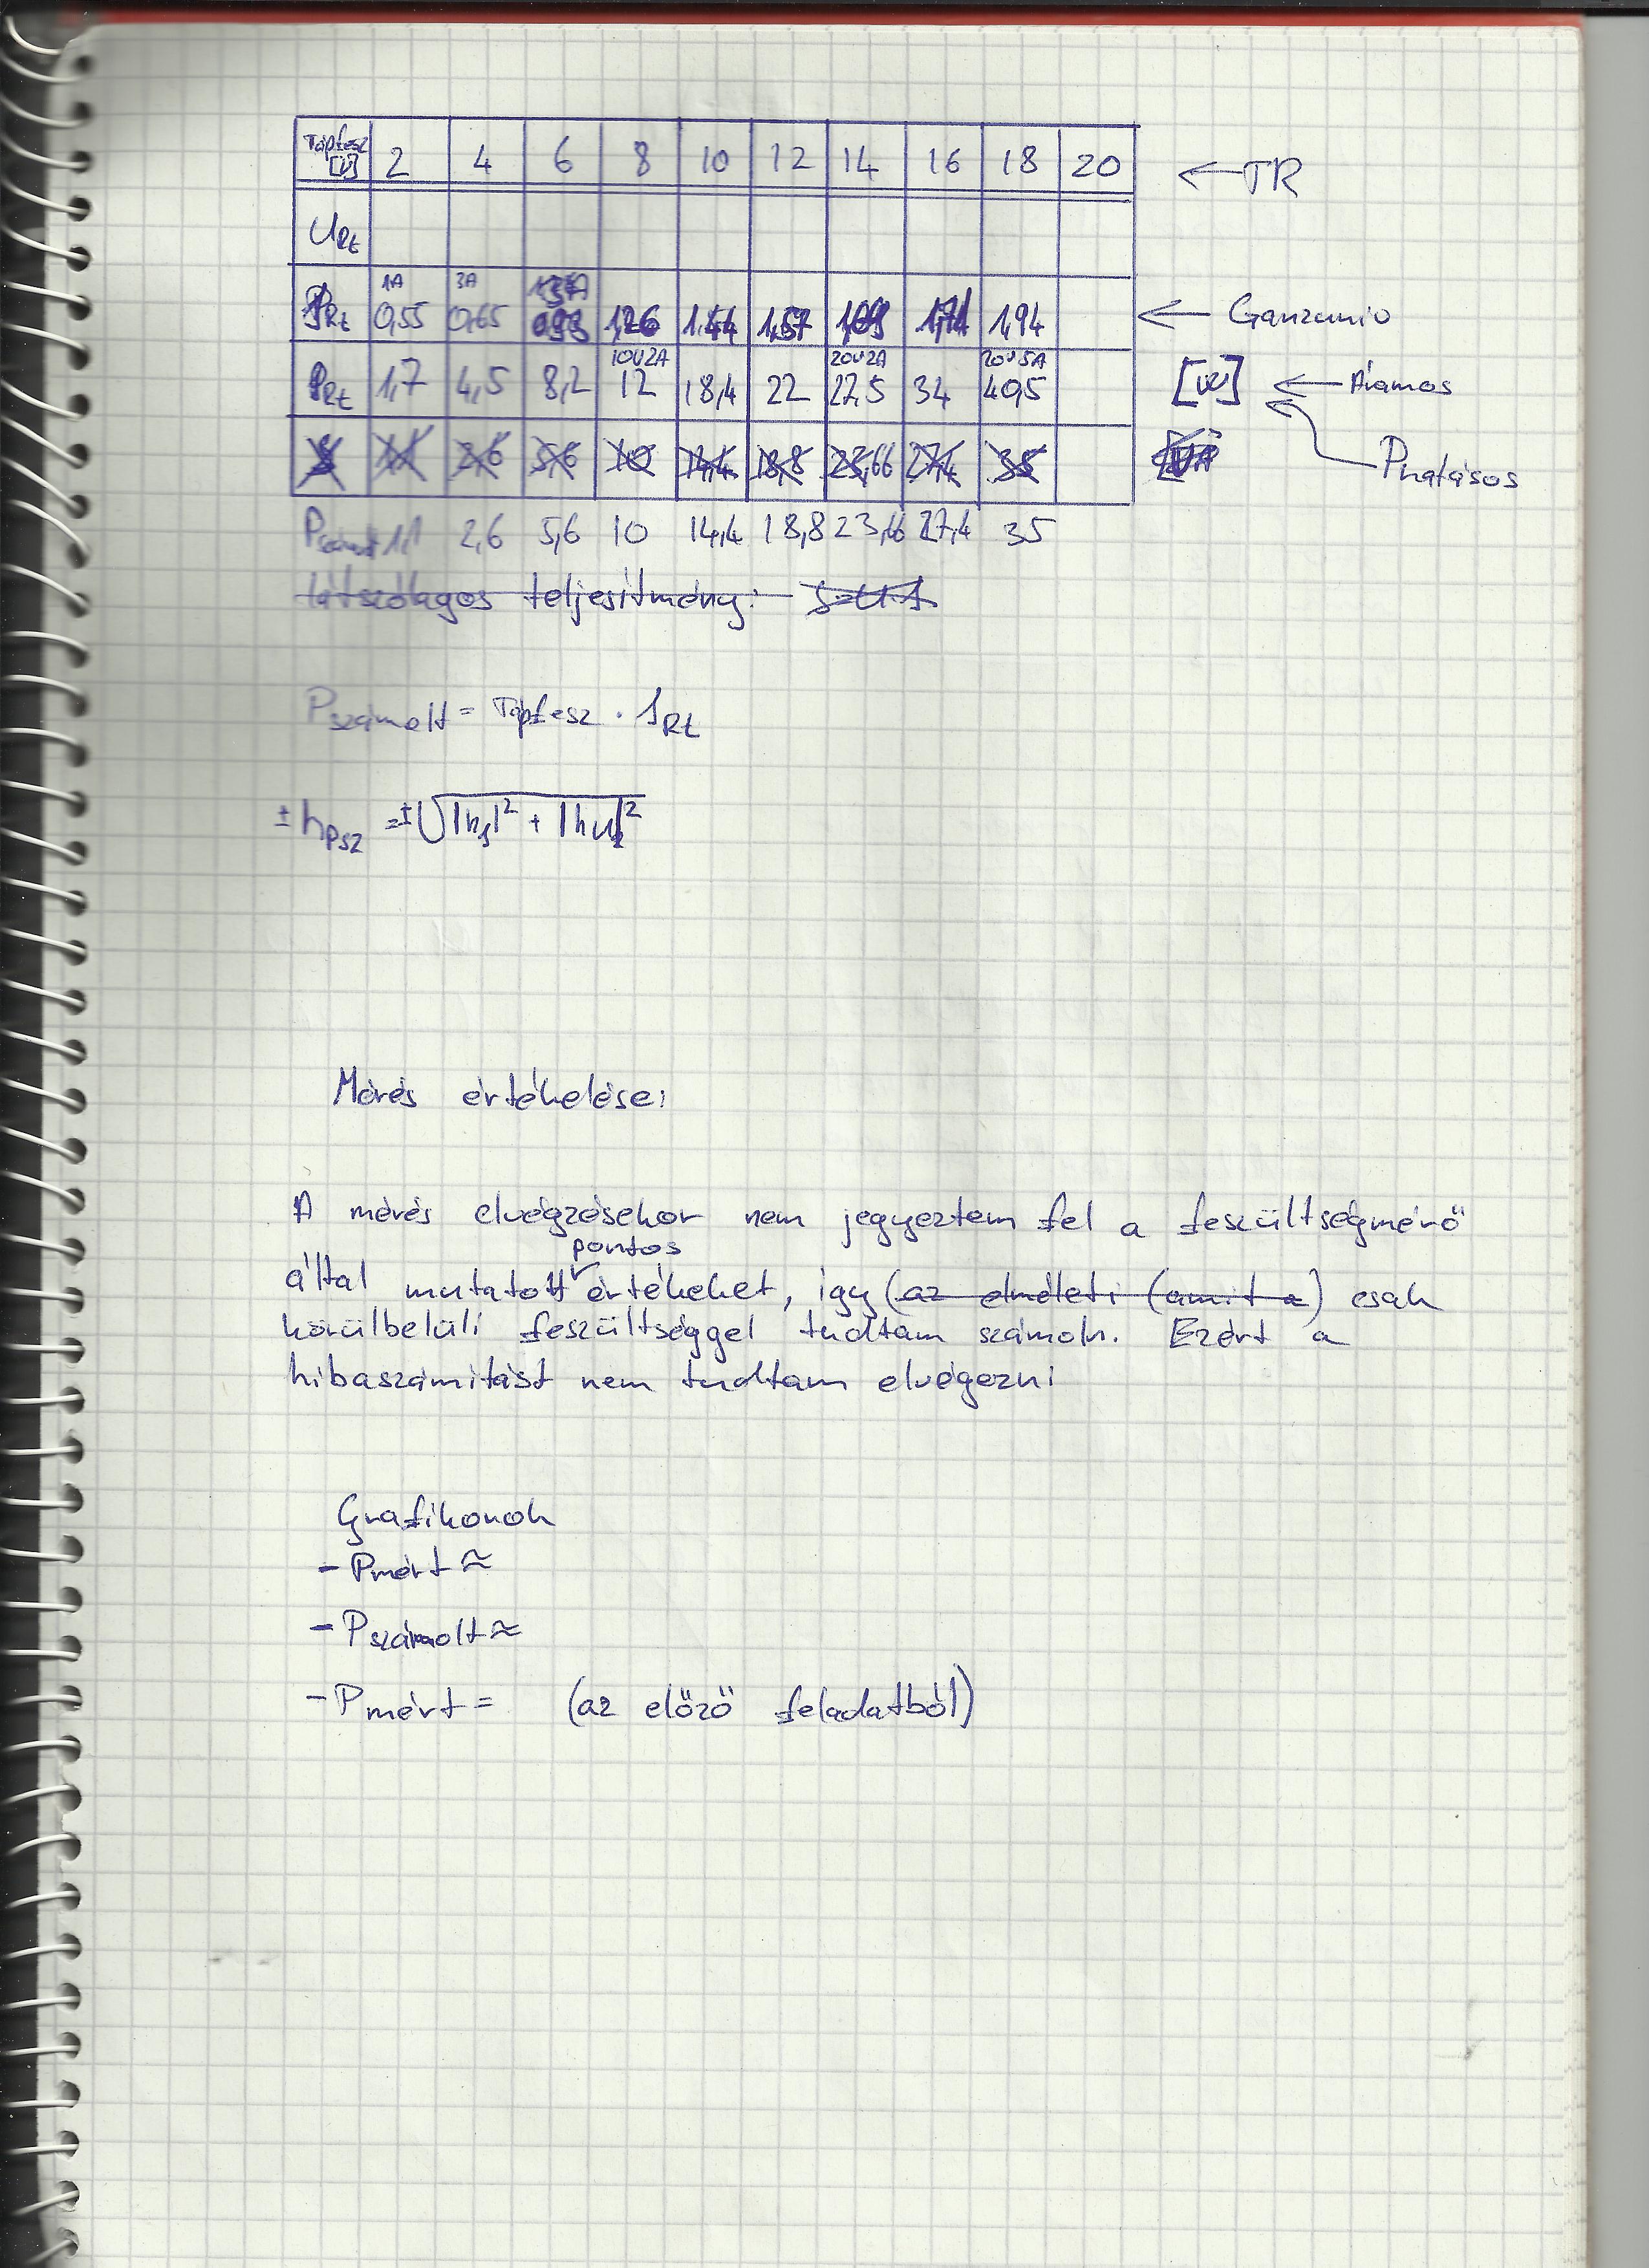 Tápfesz [V] 2 4 6 8 10 12 14 16 18 20 ← TR
U_Rt
1A 3A
I_Rt 0,55 0,65 0,93 1,26 1,44 1,57 1,69 1,71 1,94 ← Ganzunio
10V2A 20V2A 20V5A
P_Rt 1,7 4,5 8,2 12 18,4 22 22,5 34 40,5 [W] ←
S 1,1 2,6 5,6 10 14,4 18,8 23,66 27,4 35
Phatásos
Pszámolt 1,1 2,6 5,6 10 14,4 18,8 23,66 27,4 35
látszólagos teljesítmény: S=U·I
Pszámolt = Tápfesz · I_Rt
± h_Psz = ±√|h_I|² + |h_U|²
Mérés értékelése:
A mérés elvégzésekor nem jegyeztem fel a feszültségmérő
pontos
által mutatott értékeket, így (az elméleti (amit a) csak
körülbelüli feszültséggel tudtam számoln. Ezért a
hibaszámítást nem tudtam elvégezni
Grafikonok
- Pmért ≈
- Pszámolt ≈
- Pmért = (az előző feladatból)